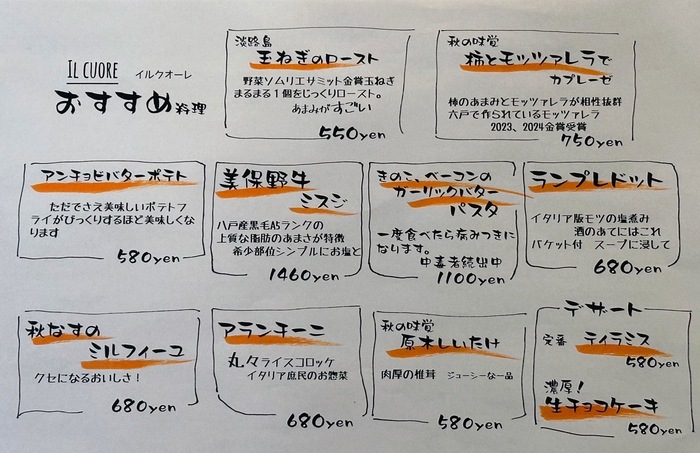 IL CUORE イルクオーレ
おすすめ料理
淡路島
玉ねぎのロースト
野菜ソムリエサミット金賞玉ねぎ
まるまる1個をじっくりロースト。
あまみがすごい
550yen
秋の味覚
柿とモッツァレラで
カプレーゼ
柿のあまみとモッツァレラが相性抜群
六戸で作られているモッツァレラ
2023、2024金賞受賞
750yen
アンチョビバターポテト
ただでさえ美味しいポテトフ
ライがびっくりするほど美味しくな
ります
580yen
美保野牛
ミスジ
八戸産黒毛A5ランクの
上質な脂肪のあまさが特徴
希少部位シンプルにお塩と
1460yen
きのこ、ベーコンの
ガーリックバター
パスタ
一度食べたら病みつきに
なります。
中毒者続出中
1100yen
ランプレドット
イタリア版モツの塩煮み
酒のあてにはこれ
バケット付 スープに浸して
680yen
秋なすの
ミルフィーユ
クセになるおいしさ!
680yen
アランチーニ
丸々ライスコロッケ
イタリア庶民のお惣菜
680yen
秋の味覚
原木しいたけ
肉厚の椎茸 ジューシーな一品
580yen
デザート
定番 ティラミス
580yen
濃厚!
生チョコケーキ
580yen